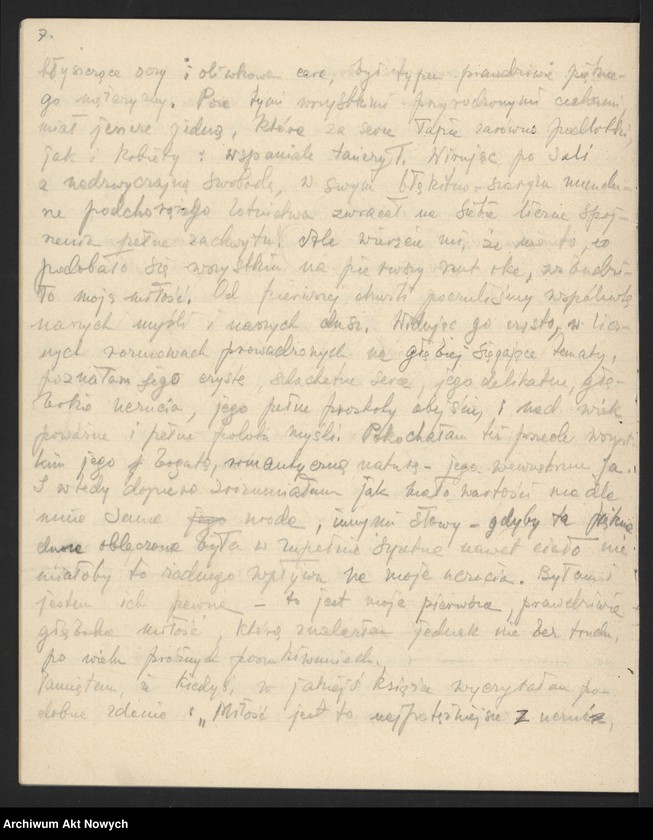 7.
błyszczące oczy i oliwkowa cera, był typem prawdziwie piękne-
go mężczyzny. Poza tymi wszystkimi przyrodzonymi cechami
miał jeszcze jedną, która za serce łapie zarówno podlotki
jak i kobiety: wspaniale tańczył. Wirując po sali
z nadzwyczajną swobodą, w swym błękitno-szarym mundu-
rze podchorążego lotnictwa zwracał na siebie liczne spoj-
rzenia pełne zachwytu. Ale wierzcie mi, że nie to, co
podobało się wszystkim na pierwszy rzut oka, wzbudzi-
ło moją miłość. Od pierwszej chwili poczuliśmy wspólnotę
naszych myśli i naszych dusz. Widując go często, w licz-
nych rozmowach prowadzonych na głębiej sięgające tematy,
poznałam jego czyste, szlachetne serce, jego delikatne, głę-
bokie uczucia, jego pełne prostoty obejście, i nad wiek
poważne i pełne polotu myśli. Pokochałam też przede wszyst-
kim jego bogatą, romantyczną naturę - jego wewnętrzne ja.
I wtedy dopiero zrozumiałam jak mało wartości ma dla
mnie sama uroda, innymi słowy - gdyby ta piękna
dusza obleczona była w zupełnie brzydkie nawet ciało nie
miałoby to żadnego wpływu na moje uczucia. Byłam i
jestem ich pewna - to jest moja pierwsza, prawdziwie
głęboka miłość, którą znalazłam jednak nie bez trudu,
po wielu próżnych poszukiwaniach.
Pamiętam, że kiedyś, w jakiejś książce wyczytałam po-
dobne zdanie: „Miłość jest to najpotężniejsze z uczuć,
Archiwum Akt Nowych